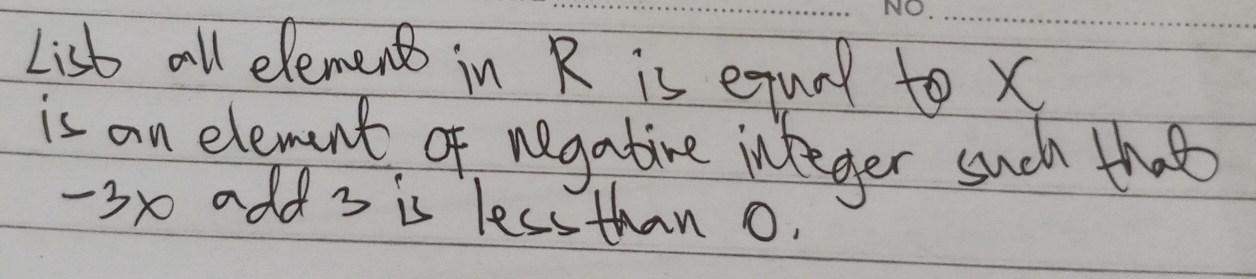 NO.
List all element in R is equal to X
is an element of negative integer such that
-3x add 3 is less than 0.